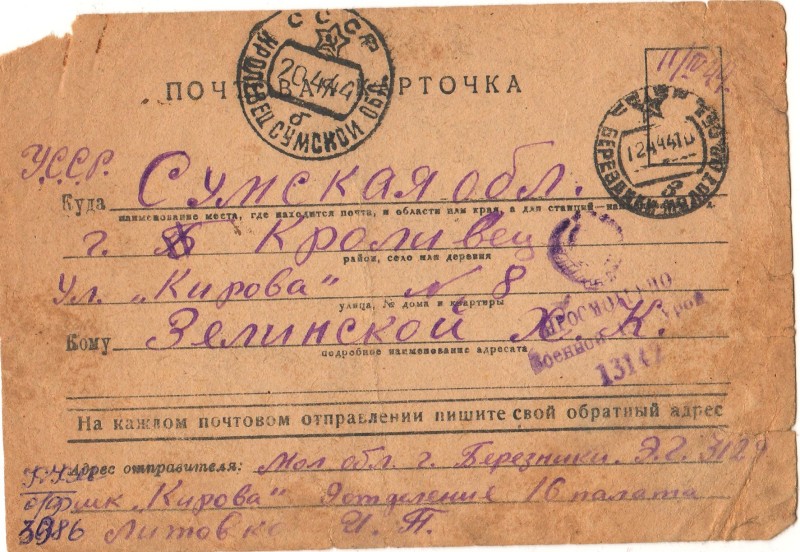 СССР
КРОЛЕВЕЦ СУМСКОЙ ОБЛ.
20.4.44
б
ПОЧТОВАЯ КАРТОЧКА
11/IV 44.
БЕРЕЗНИКИ МОЛОТОВ.
12.4.44
б
У.С.С.Р.
Куда Сумская обл.
наименование места, где находится почта, и области или края, а для станций
г. Кроливец
район, село или деревня
ул. „Кирова" № 8
улица, № дома и квартиры
ПРОСМОТРЕНО
Военной Цензурой
13142
Кому Зелинской Х. К.
подробное наименование адресата
На каждом почтовом отправлении пишите свой обратный адрес
Адрес отправителя: Мол обл. г. Березники. Э.Г. 3129
„Кирова" 9 отделение 16 палата
3986 Литовка И. П.